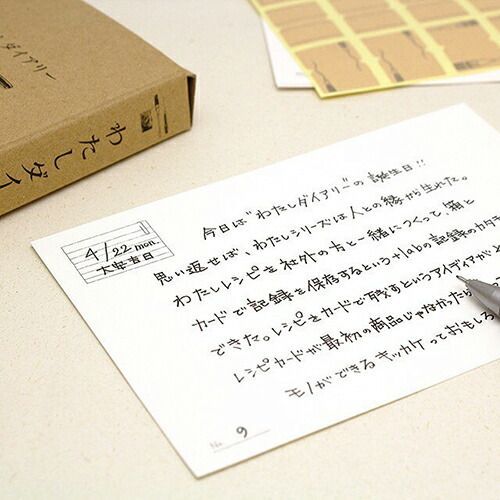 ダイアリー
わたしダイ
4/22 mon.
大安吉日
今日は"わたしダイアリー"の誕生日!!
思い返せば、わたしシリーズは人との縁から生れた。
わたしレシピを社外の方と一緒につくって、箱と
カードで記録を保存するという+labの記録のカタ
できた。レシピをカードで残すというアイディアがと
レシピカードが最初の商品じゃなかったら
モノができるキッカケっておもしろ
No 9